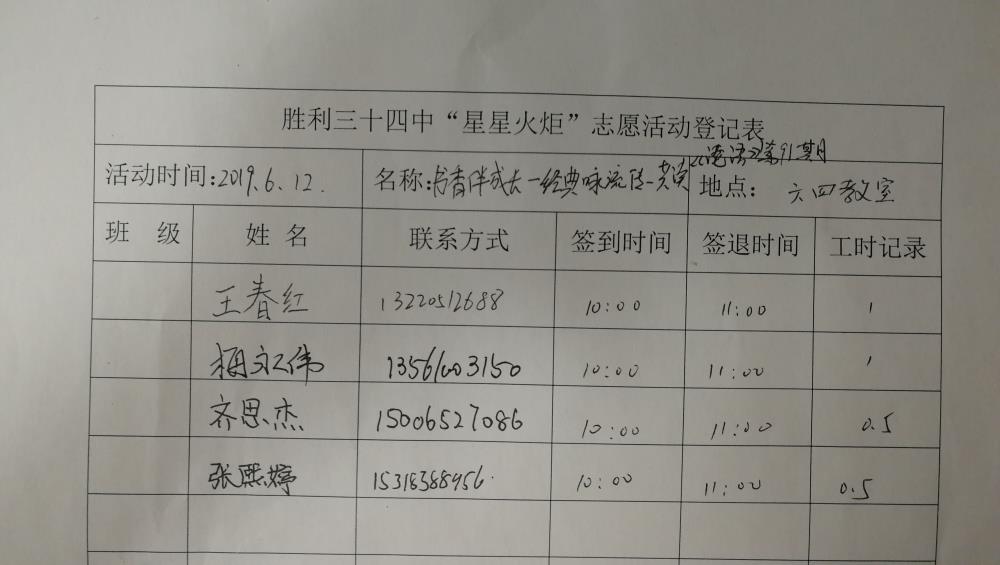 胜利三十四中“星星火炬”志愿活动登记表
第91期
活动时间:2019.6.12. 名称:书香伴成长—经典咏流传— 地点: 六四教室
班 级 姓 名 联系方式 签到时间 签退时间 工时记录
王春红 13220512688 10:00 11:00 1
伟 13561003150 10:00 11:00 1
齐思杰 15006527086 10:00 11:00 0.5
张熙婷 15318388956. 10:00 11:00 0.5